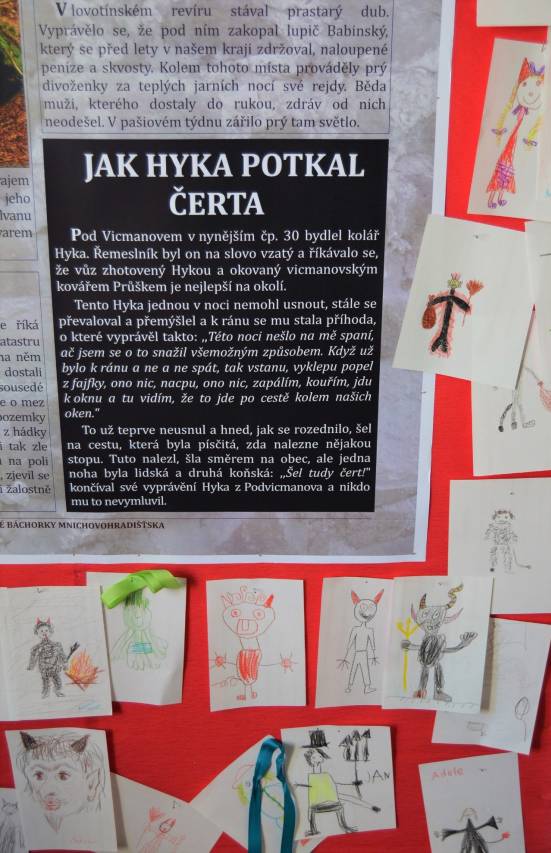 Vlovotínském revíru stával prastarý dub.
Vyprávělo se, že pod ním zakopal lupič Babinský,
který se před lety v našem kraji zdržoval, naloupené
peníze a skvosty. Kolem tohoto místa prováděly prý
divoženky za teplých jarních nocí své rejdy. Běda
muži, kterého dostaly do rukou, zdráv od nich
neodešel. V pašiovém týdnu zářilo prý tam světlo.
JAK HYKA POTKAL
ČERTA
Pod Vicmanovem v nynějším čp. 30 bydlel kolář
Hyka. Řemeslník byl on na slovo vzatý a říkávalo se,
že vůz zhotovený Hykou a okovaný vicmanovským
kovářem Průškem je nejlepší na okolí.
Tento Hyka jednou v noci nemohl usnout, stále se
převaloval a přemýšlel a k ránu se mu stala příhoda,
o které vyprávěl takto: „Této noci nešlo na mě spaní,
ač jsem se o to snažil všemožným způsobem. Když už
bylo k ránu a ne a ne spát, tak vstanu, vyklepu popel
z fajfky, ono nic, nacpu, ono nic, zapálím, kouřím, jdu
k oknu a tu vidím, že to jde po cestě kolem našich
oken."
To už teprve neusnul a hned, jak se rozednilo, šel
na cestu, která byla písčitá, zda nalezne nějakou
stopu. Tuto nalezl, šla směrem na obec, ale jedna
noha byla lidská a druhá koňská: „Šel tudy čert!"
končíval své vyprávění Hyka z Podvicmanova a nikdo
mu to nevymluvil.
jeho
e říká
na něm
dostali
sousedé
e o mez
z hádky
tak zle
na poli
zjevil se
žalostně
BÁCHORKY MNICHOVOHRADIŠŤSKA
JAN
Adéla